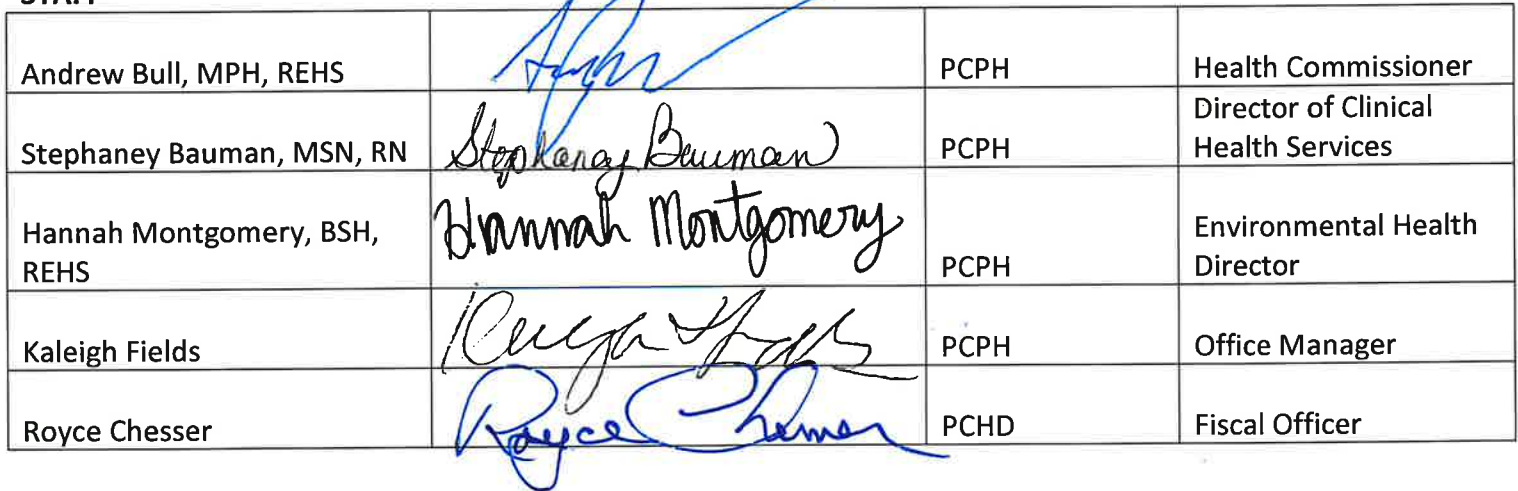 STAFF
Andrew Bull, MPH, REHS PCPH Health Commissioner
Stephaney Bauman, MSN, RN Stephaney Bauman PCPH Director of Clinical
Health Services
Hannah Montgomery, BSH,
REHS Hannah Montgomery PCPH Environmental Health
Director
Kaleigh Fields PCPH Office Manager
Royce Chesser Royce Chesser PCHD Fiscal Officer